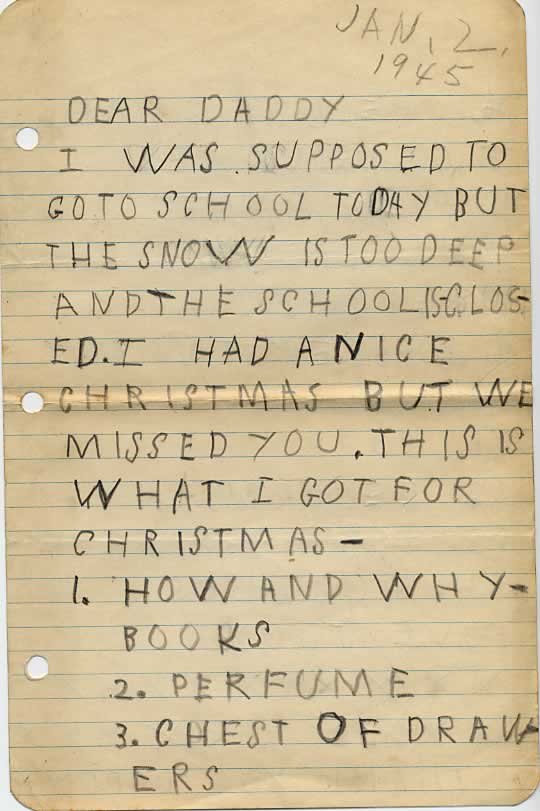 JAN. 2,
1945
DEAR DADDY
I WAS SUPPOSED TO
GO TO SCHOOL TODAY BUT
THE SNOW IS TOO DEEP
AND THE SCHOOL IS CLOS-
ED. I HAD A NICE
CHRISTMAS BUT WE
MISSED YOU. THIS IS
WHAT I GOT FOR
CHRISTMAS-
1. HOW AND WHY-
BOOKS
2. PERFUME
3. CHEST OF DRAW-
ERS